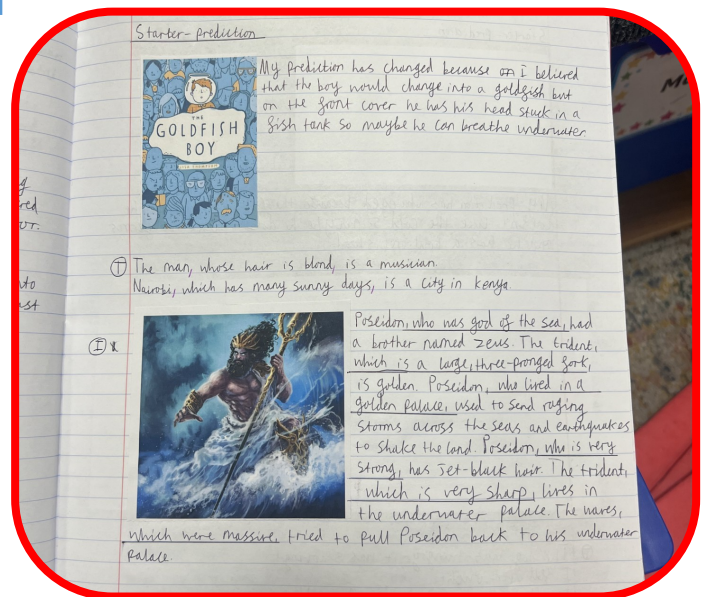 Starter-prediction
My prediction has changed because I believed
that the boy would change into a goldfish but
on the front cover he has his head stuck in a
fish tank so maybe he can breathe underwater
THE
GOLDFISH
BOY
T The man, whose hair is blond, is a musician.
Nairobi, which has many sunny days, is a city in Kenya.
I
Poseidon, who was god of the sea, had
a brother named Zeus. The trident,
which is a large, three-pronged fork,
is golden. Poseidon, who lived in a
golden palace, used to send raging
storms across the seas and earthquakes
to shake the land. Poseidon, who is very
strong, has jet-black hair. The trident,
which is very sharp, lives in
the underwater palace. The waves,
which were massive, tried to pull Poseidon back to his underwater
palace.